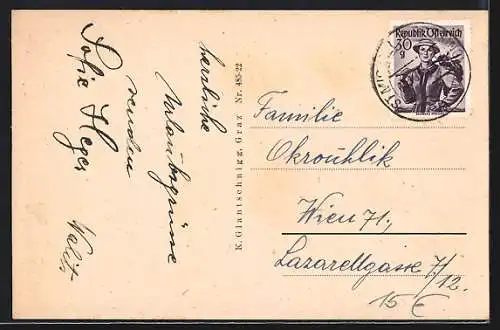 herzliche
Urlaubsgrüsse
senden
Sofie Heger
K. Glantschnigg, Graz Nr. 485-22
Republik Österreich
30
g
ST. MIC
Familie
Okrouhlik
Wien 71,
Lazarettgasse 7/12.
15 €